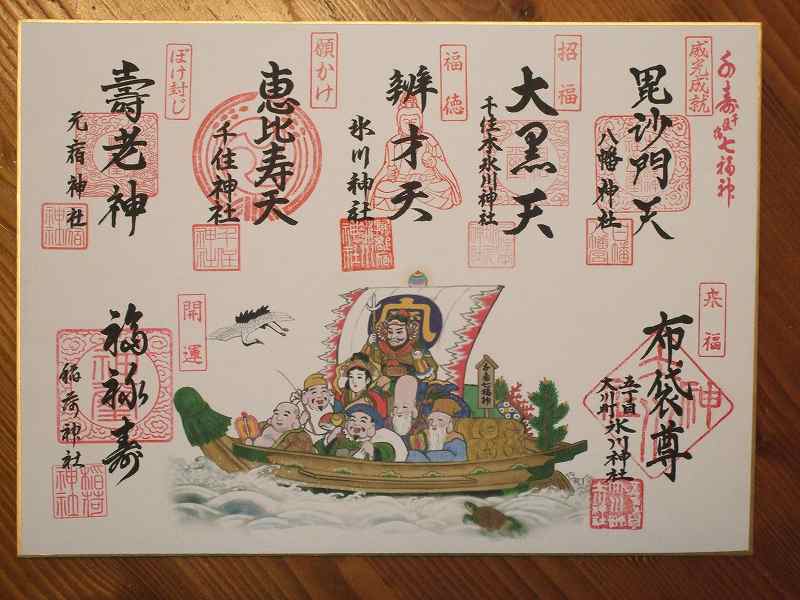 千寿七福神
威光成就
毘沙門天
八幡神社
招福
大黒天
千住本氷川神社
福徳
辨才天
氷川神社
願かけ
恵比寿天
千住神社
千住
神社
ぼけ封じ
壽老神
元宿神社
来福
布袋尊
五丁目
大川町氷川神社
千寿七福神
開運
福禄寿
稲荷神社
稲荷
神社